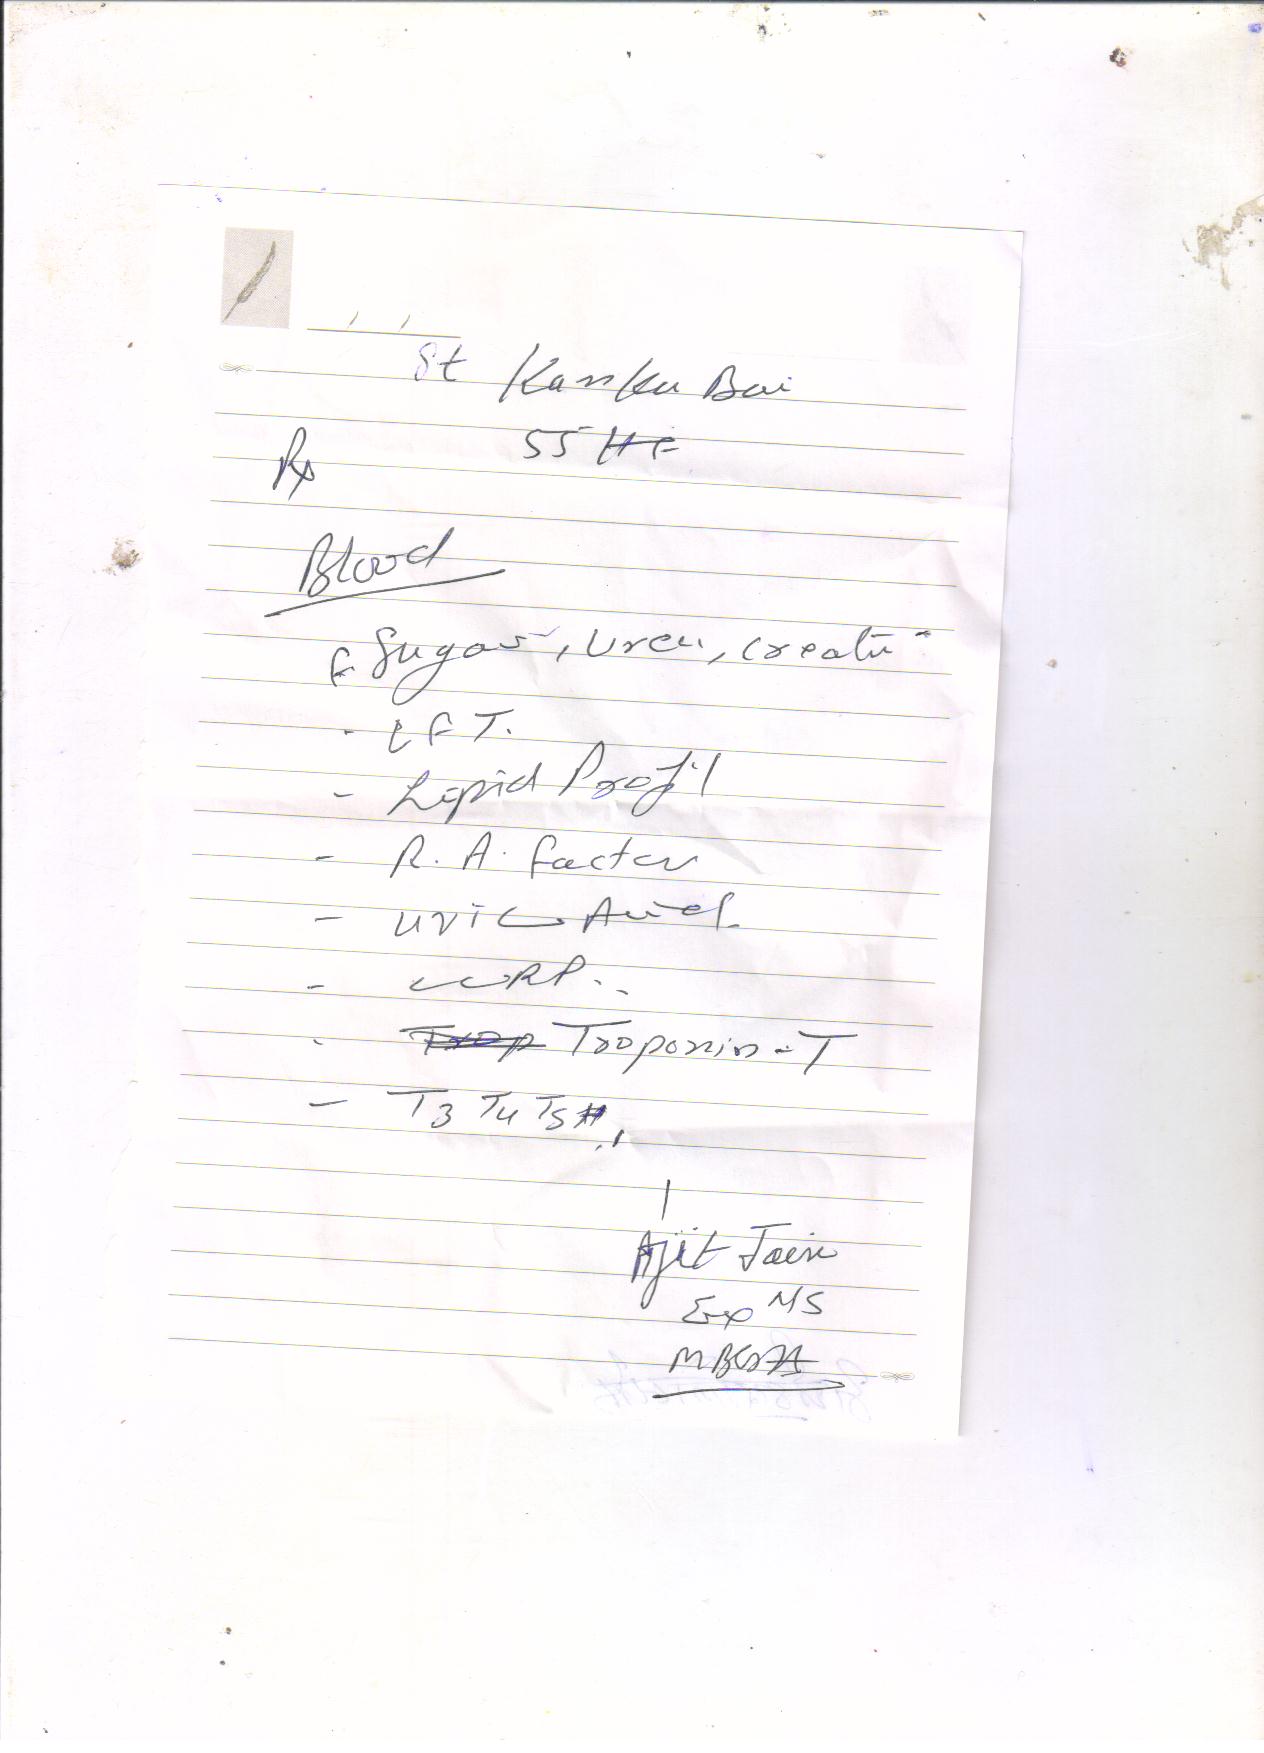 St Kanku Bai
55 HF
Rx
Blood
F Sugar, Urea, Creatin
- LFT.
- Lipid Profil
- R. A. factor
- Uric Acid
- CRP..
- Troponin-T
- T3 T4 TSH
Ajit Jain
MS